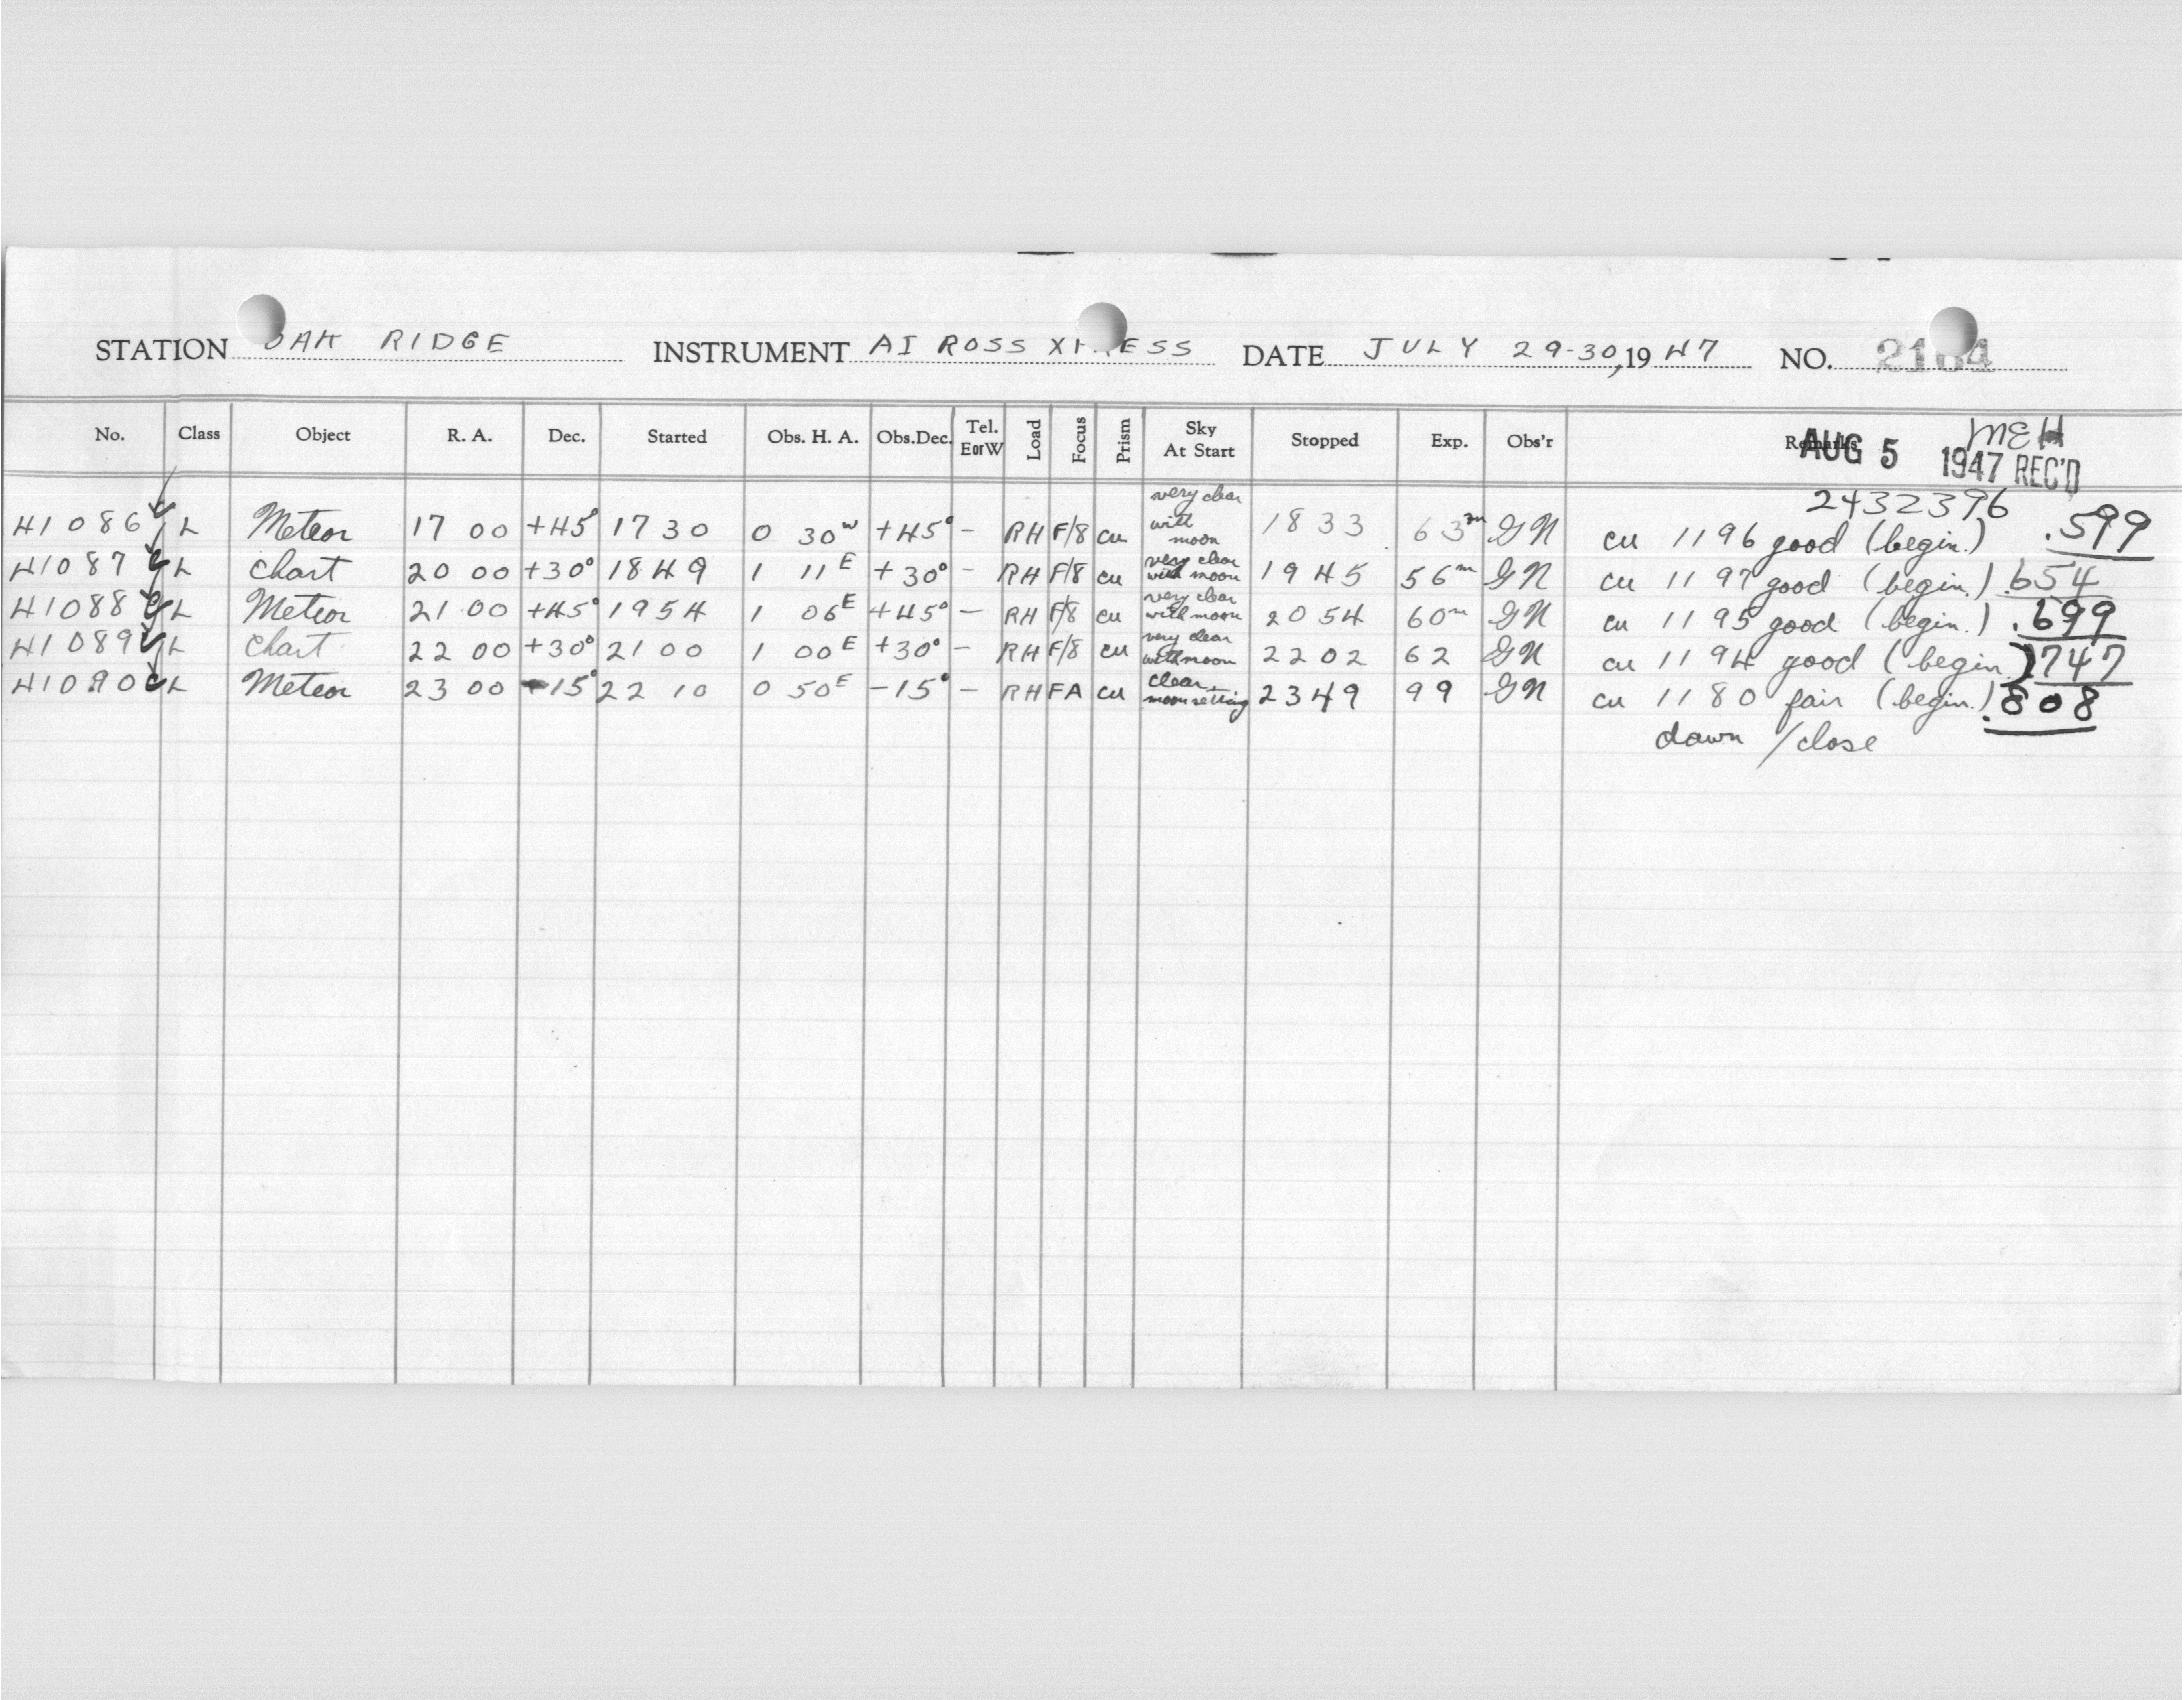 STATION OAK RIDGE INSTRUMENT AI ROSS XPRESS DATE JULY 29-30, 1947 NO. 2164
No. Class Object R. A. Dec. Started Obs. H. A. Obs.Dec. Tel. E or W Load Focus Prism Sky At Start Stopped Exp. Obs'r Remarks
MEH
AUG 5 1947 REC'D
2432396
41086 L Meteor 17 00 +45° 1730 0 30W +45° - RH F/8 cu very clear with moon 1833 63m GN cu 1196 good (begin.) .599
41087 L Chart 20 00 +30° 1849 1 11E +30° - RH F/8 cu very clear with moon 1945 56m GN cu 1197 good (begin.) .654
41088 L Meteor 21 00 +45° 1954 1 06E +45° - RH F/8 cu very clear with moon 2054 60m GN cu 1195 good (begin.) .699
41089 L Chart 22 00 +30° 2100 1 00E +30° - RH F/8 cu very clear with moon 2202 62 GN cu 1194 good (begin.) 747
41090 L Meteor 23 00 -15° 22 10 0 50E -15° - RH FA cu clear moon setting 2349 99 GN cu 1180 fair (begin.) .808
dawn / close